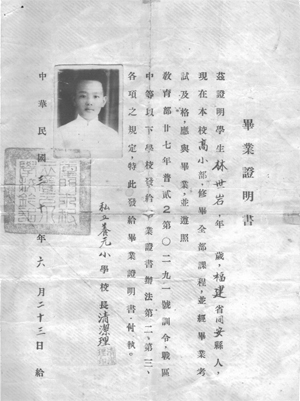 畢業證明書
茲證明學生林世岩，年　歲，福建省同安縣人，
現在本校高小部，修畢全部課程，並經畢業考
試及格，應與畢業，並遵照
教育部廿七年普貳2第〇二九一號訓令，戰區
中等以下學校發給畢業證書辦法第二、第三、
各項之規定，特此發給畢業證明書，付執。
私立養元小學校長清潔理
中華民國　年六月二十三日給